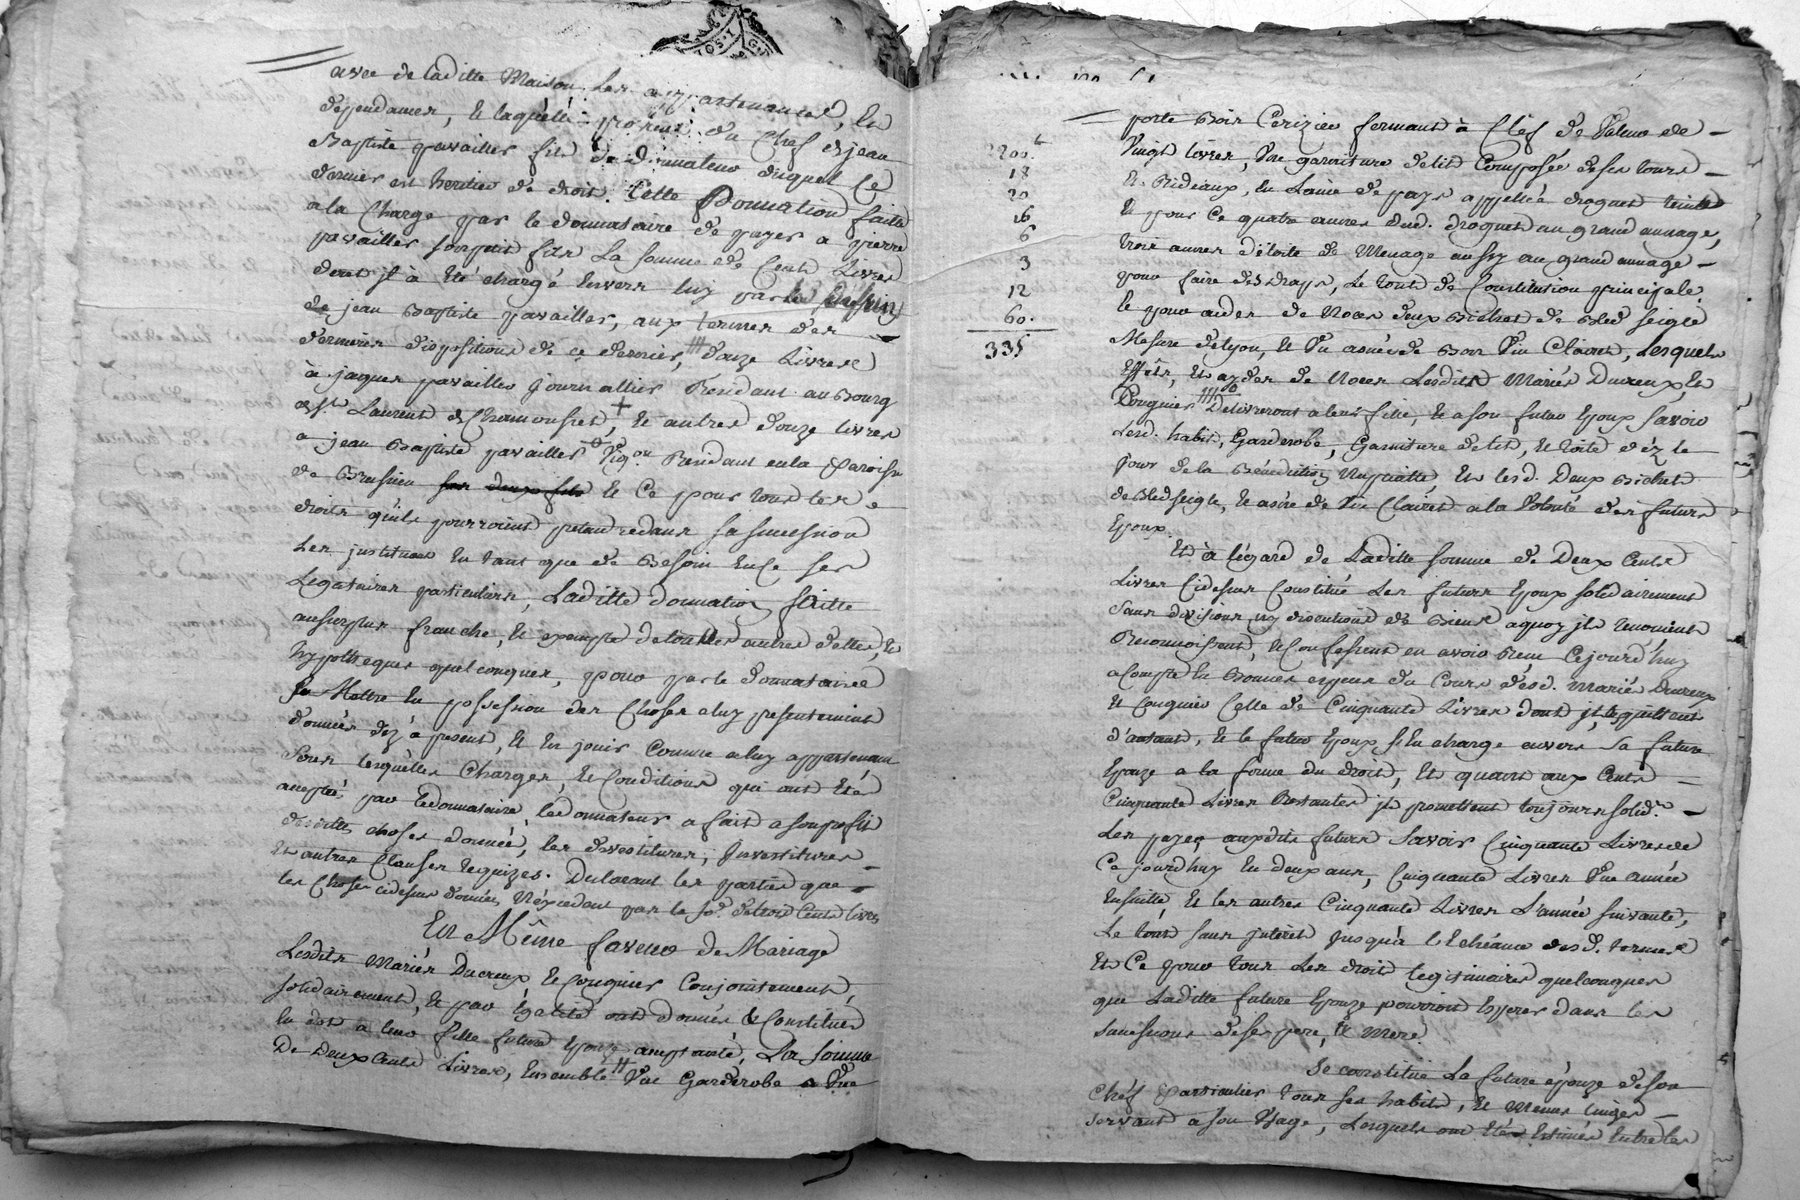 avec de Laditte Maison Les appartenances, Et
dépendances, Et laquelle provient du Chef de jean
Baptiste pavailler fils du donnateur duquel Ce
dernier est heritier de droit. Cette Donnation faitte
a la Charge par le donnataire de payer a pierre
pavailler son petit fils La somme de Cent Livres
dont jl à Eté chargé Envers luy par
de jean Baptiste pavailler, aux termes des
dernieres dispositions de ce dernier, douze Livres
à jaques pavailler journallier Residant au Bourg
de St. Laurent de Chamousset, Et autres douze livres
a jean Baptiste pavailler Vigon Residant en la paroisse
de Brussieu Et Ce pour tous les
droits qu'ils pourroient pretandre dans sa succession
Les jnstituant En tant que de Besoin En Ce ses
Legataires particuliers, Laditte donnation faitte
au surplus franche, Et exempte de touttes autres dettes, Et
hypotheques quelconques, pour par le donnataire
Se Mettre En possession des Choses a luy presentement
données dez à present, Et En jouir Comme a luy appartenant
Sous lesquelles Charges, Et Conditions qui ont Eté
acceptées par le donnataire, le donnateur a fait a son profit
desdittes choses données, les devestitures, jnvestitures
Et autres Clauses requizes. Declarant les parties que
les Choses cidessus données N'éxcedent pas la so. de trois Cents livres
En Même faveur de Mariage
Lesdits Mariés Ducreux, Et Pougnier Conjointement,
solidairement, Et par Egalité ont donnés & Constitués
En dot a leur fille future Epouze acceptante, La somme
De Deux Cents Livres, Ensemble Vne Garderobe a Vne
200. L
18
20.
16
6
3
12
60.
335
porte Bois Cerizier fermant à Clef de Valeur de
Vingt livres, Vne garniture de lit Composée de ses tours
Et Rideaux, En Laine de pays appellée droguet teinte
Et pour Ce quatre aunes dud. droguet au grand aunage,
trois aunes de toile de Menage aussy au grand aunage
pour faire des draps, Le tout de Constitution principale.
Et pour aider de Noces deux Bichets de Bled seigle
Mesure de Lyon, Et Vn asnée de Bon Vin Clairet, Lesquels
Effets, Et ayder de Noces Lesdits Mariés Ducreux, Et
Pougnier Delivreront a leur fille, Et a son futur Epoux Savoir
Lesd. habits, Garderobe, Garniture de lit, Et toile dèz le
jour de la Bénediction Nuptialle, Et lesd. Deux Bichets
de Bled seigle, Et asnée de Vin Clairet a la Volonté des futurs
Epoux.
Et à l'égard de Laditte somme de Deux Cents
Livres Cidessus Constitué Les futurs Epoux solidairement
sans division ny discution de Biens a quoy jls renoncent
Reconnoissent, Et Confessent en avoir Reçu Cejourd'huy
a Compte En Bonnes especes du Cours desd. Mariés Ducreux
Et Pougnier Celle de Cinquante Livres dont jls les quittent
d'autant, Et le futur Epoux s'En charge envers Sa future
Epouze a la forme du droit, Et quant aux Cents
Cinquante Livres Restantes jls promettent toujours solid.
Les payer auxdits futurs Savoir Cinquante Livres de
Ce jourd'huy En deux ans, Cinquante Livres Vne année
Ensuitte, Et les autres Cinquante Livres L'année suivante,
Le tout sans jnterêt jusqu'à l'Echéance desd. termes
Et Ce pour tous Les droits legitimaires quelconques
que Laditte future Epouze pourroit Esperer dans les
Successions de ses pere, Et Mere.
Se constitue La future épouze de son
Chef particulier tous ses habits, Et Menus linges
servant a son Vsage, Lesquels ont Eté Estimés Entre les